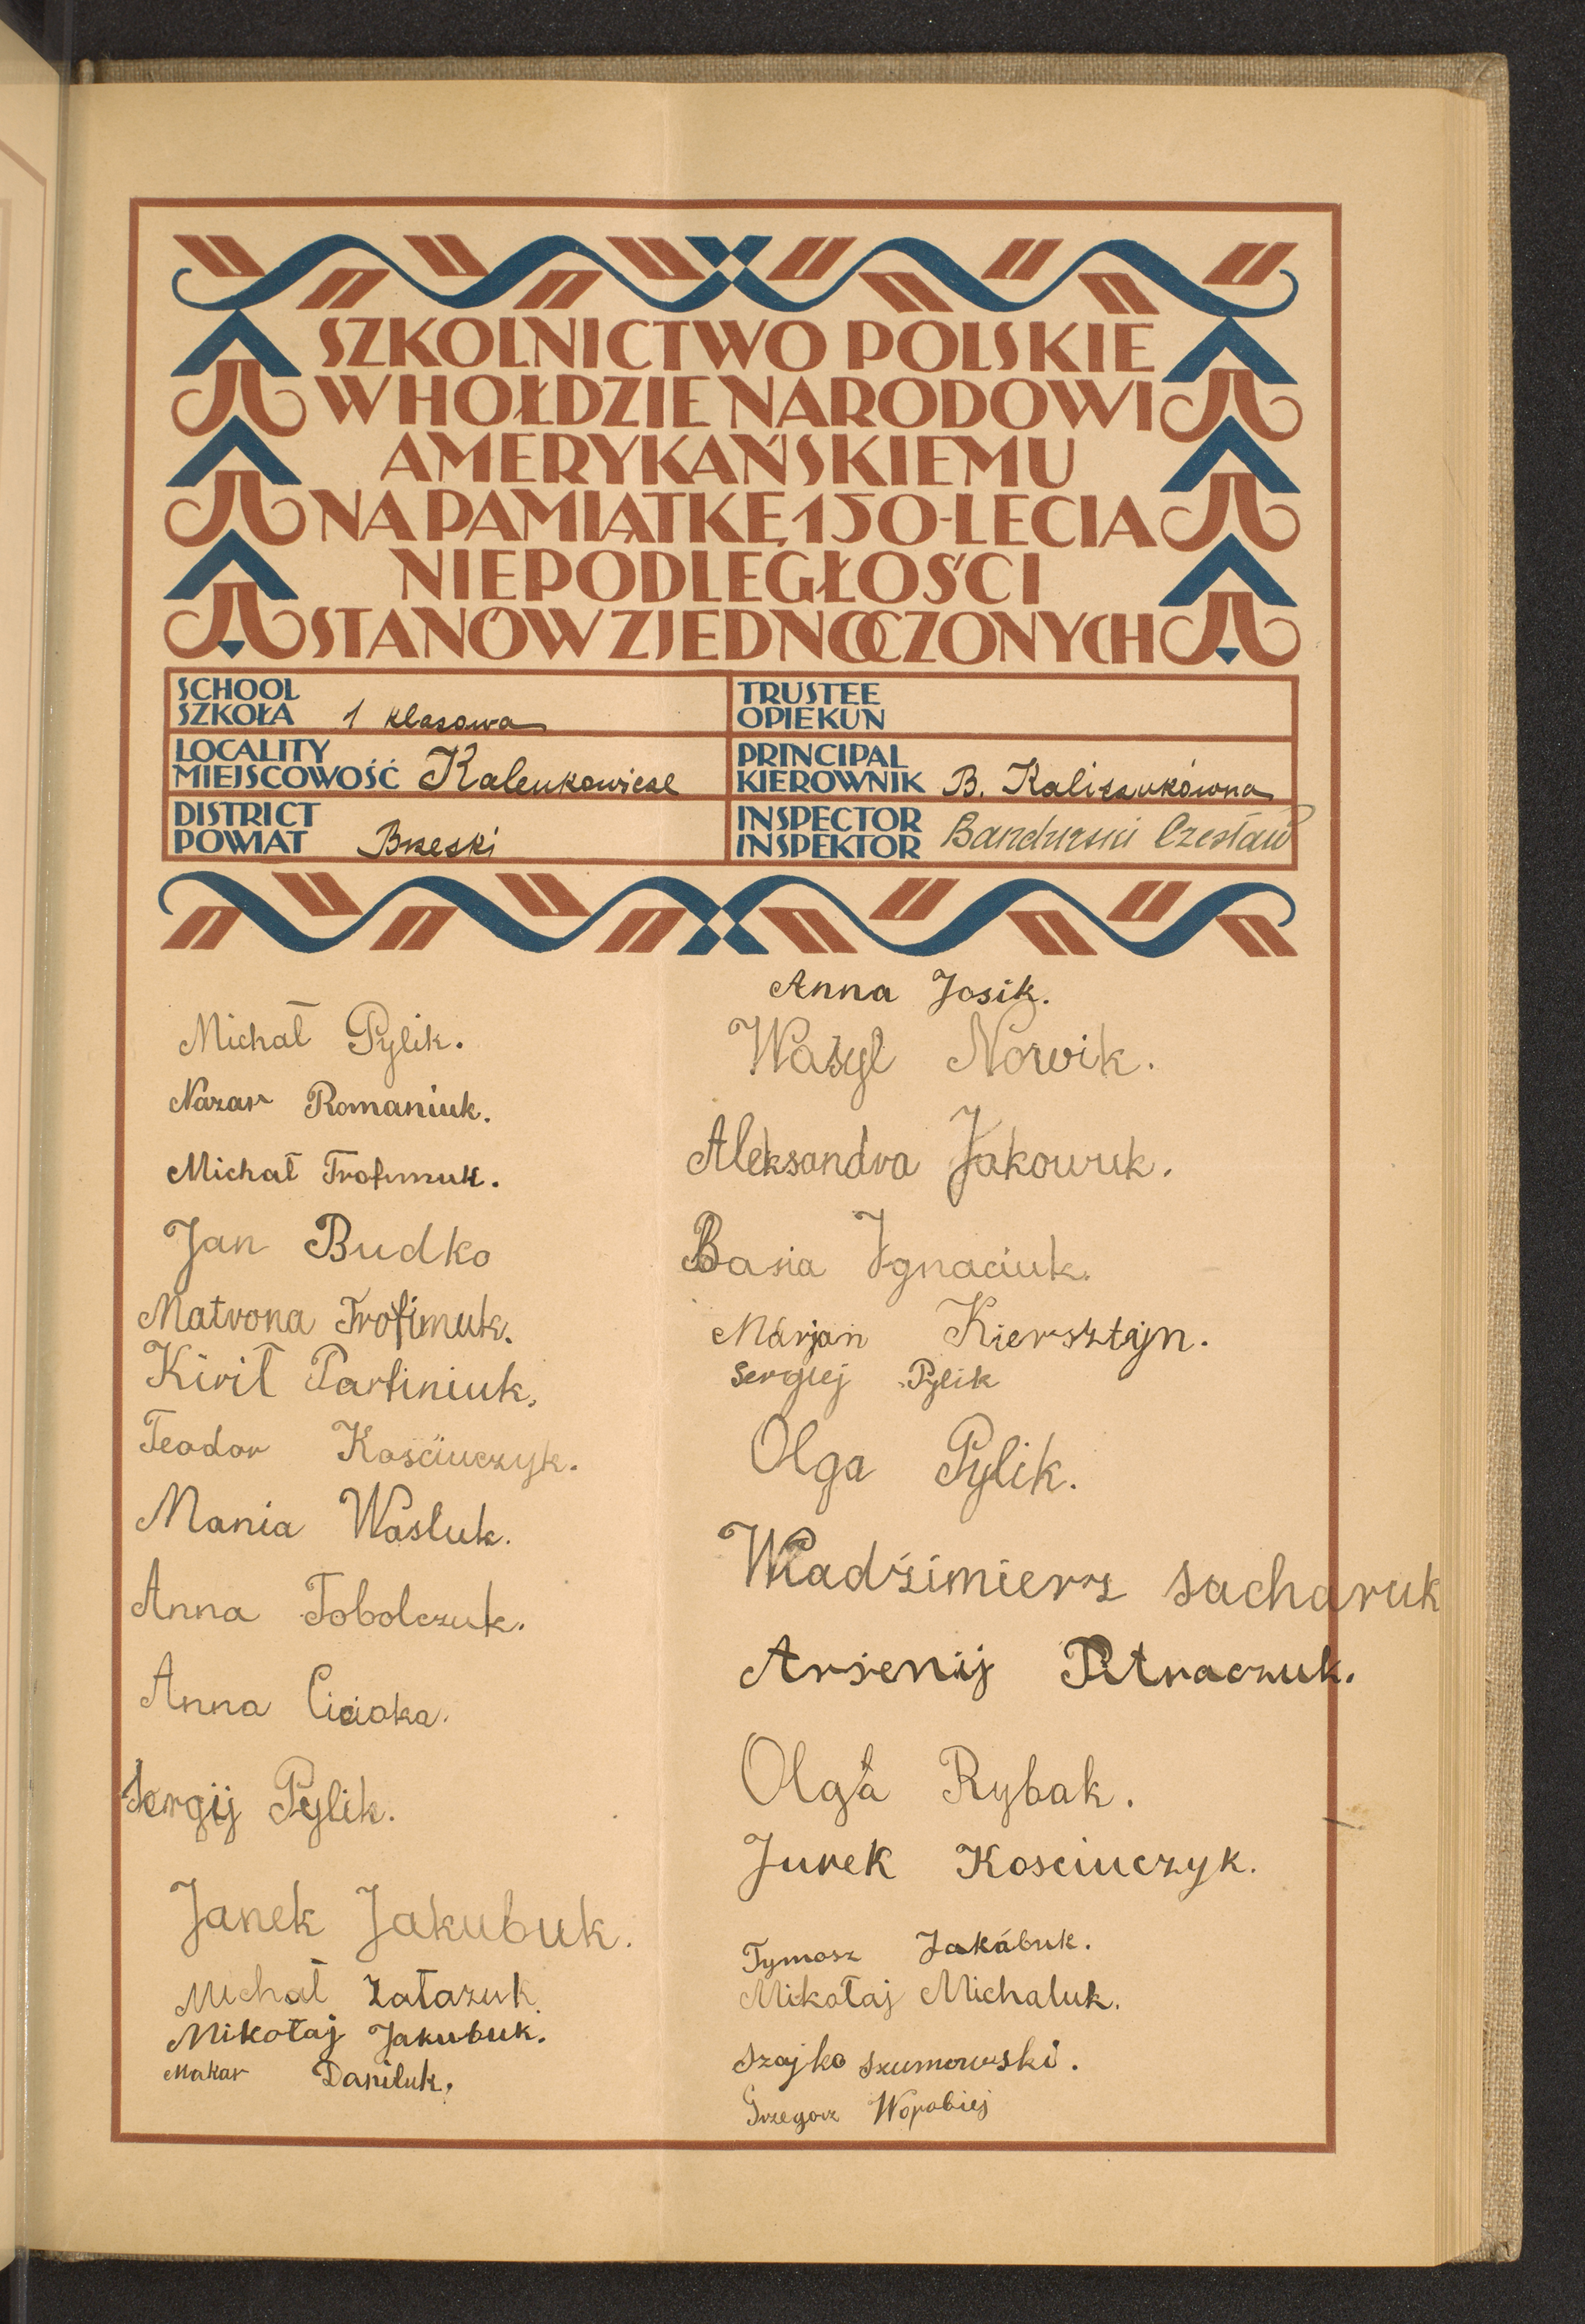 SZKOLNICTWO POLSKIE
W HOŁDZIE NARODOWI
AMERYKAŃSKIEMU
NA PAMIĄTKĘ 150-LECIA
NIEPODLEGŁOŚCI
STANÓW ZJEDNOCZONYCH
SCHOOL
SZKOŁA 1 klasowa
TRUSTEE
OPIEKUN
LOCALITY
MIEJSCOWOŚĆ Kalenkowicze
PRINCIPAL
KIEROWNIK B. Kaliszukówna
DISTRICT
POWIAT Brzeski
INSPECTOR
INSPEKTOR Bandurski Czesław
Michał Pylik.
Nazar Romaniuk.
Michał Trofimuk.
Jan Budko
Matrona Trofimuk.
Kirił Parfiniuk.
Teodor Kościuczyk.
Mania Wasluk.
Anna Tobolczuk.
Anna Cicioka.
Sergij Pylik.
Janek Jakubuk.
Michał Załazuk
Mikołaj Jakubuk.
Makar Daniluk.
Anna Josik.
Wasyl Nowik.
Aleksandra Jakowuk.
Basia Ignaciuk.
Marjan Kiersztyn.
Sergiej Pylik
Olga Pylik.
Władzimierz Sacharuk
Arsenij Pitraczuk.
Olga Rybak.
Jurek Kosciuczyk.
Tymosz Jakabuk.
Mikołaj Michaluk.
Szajko Szumowski.
Grzegorz Worobiej